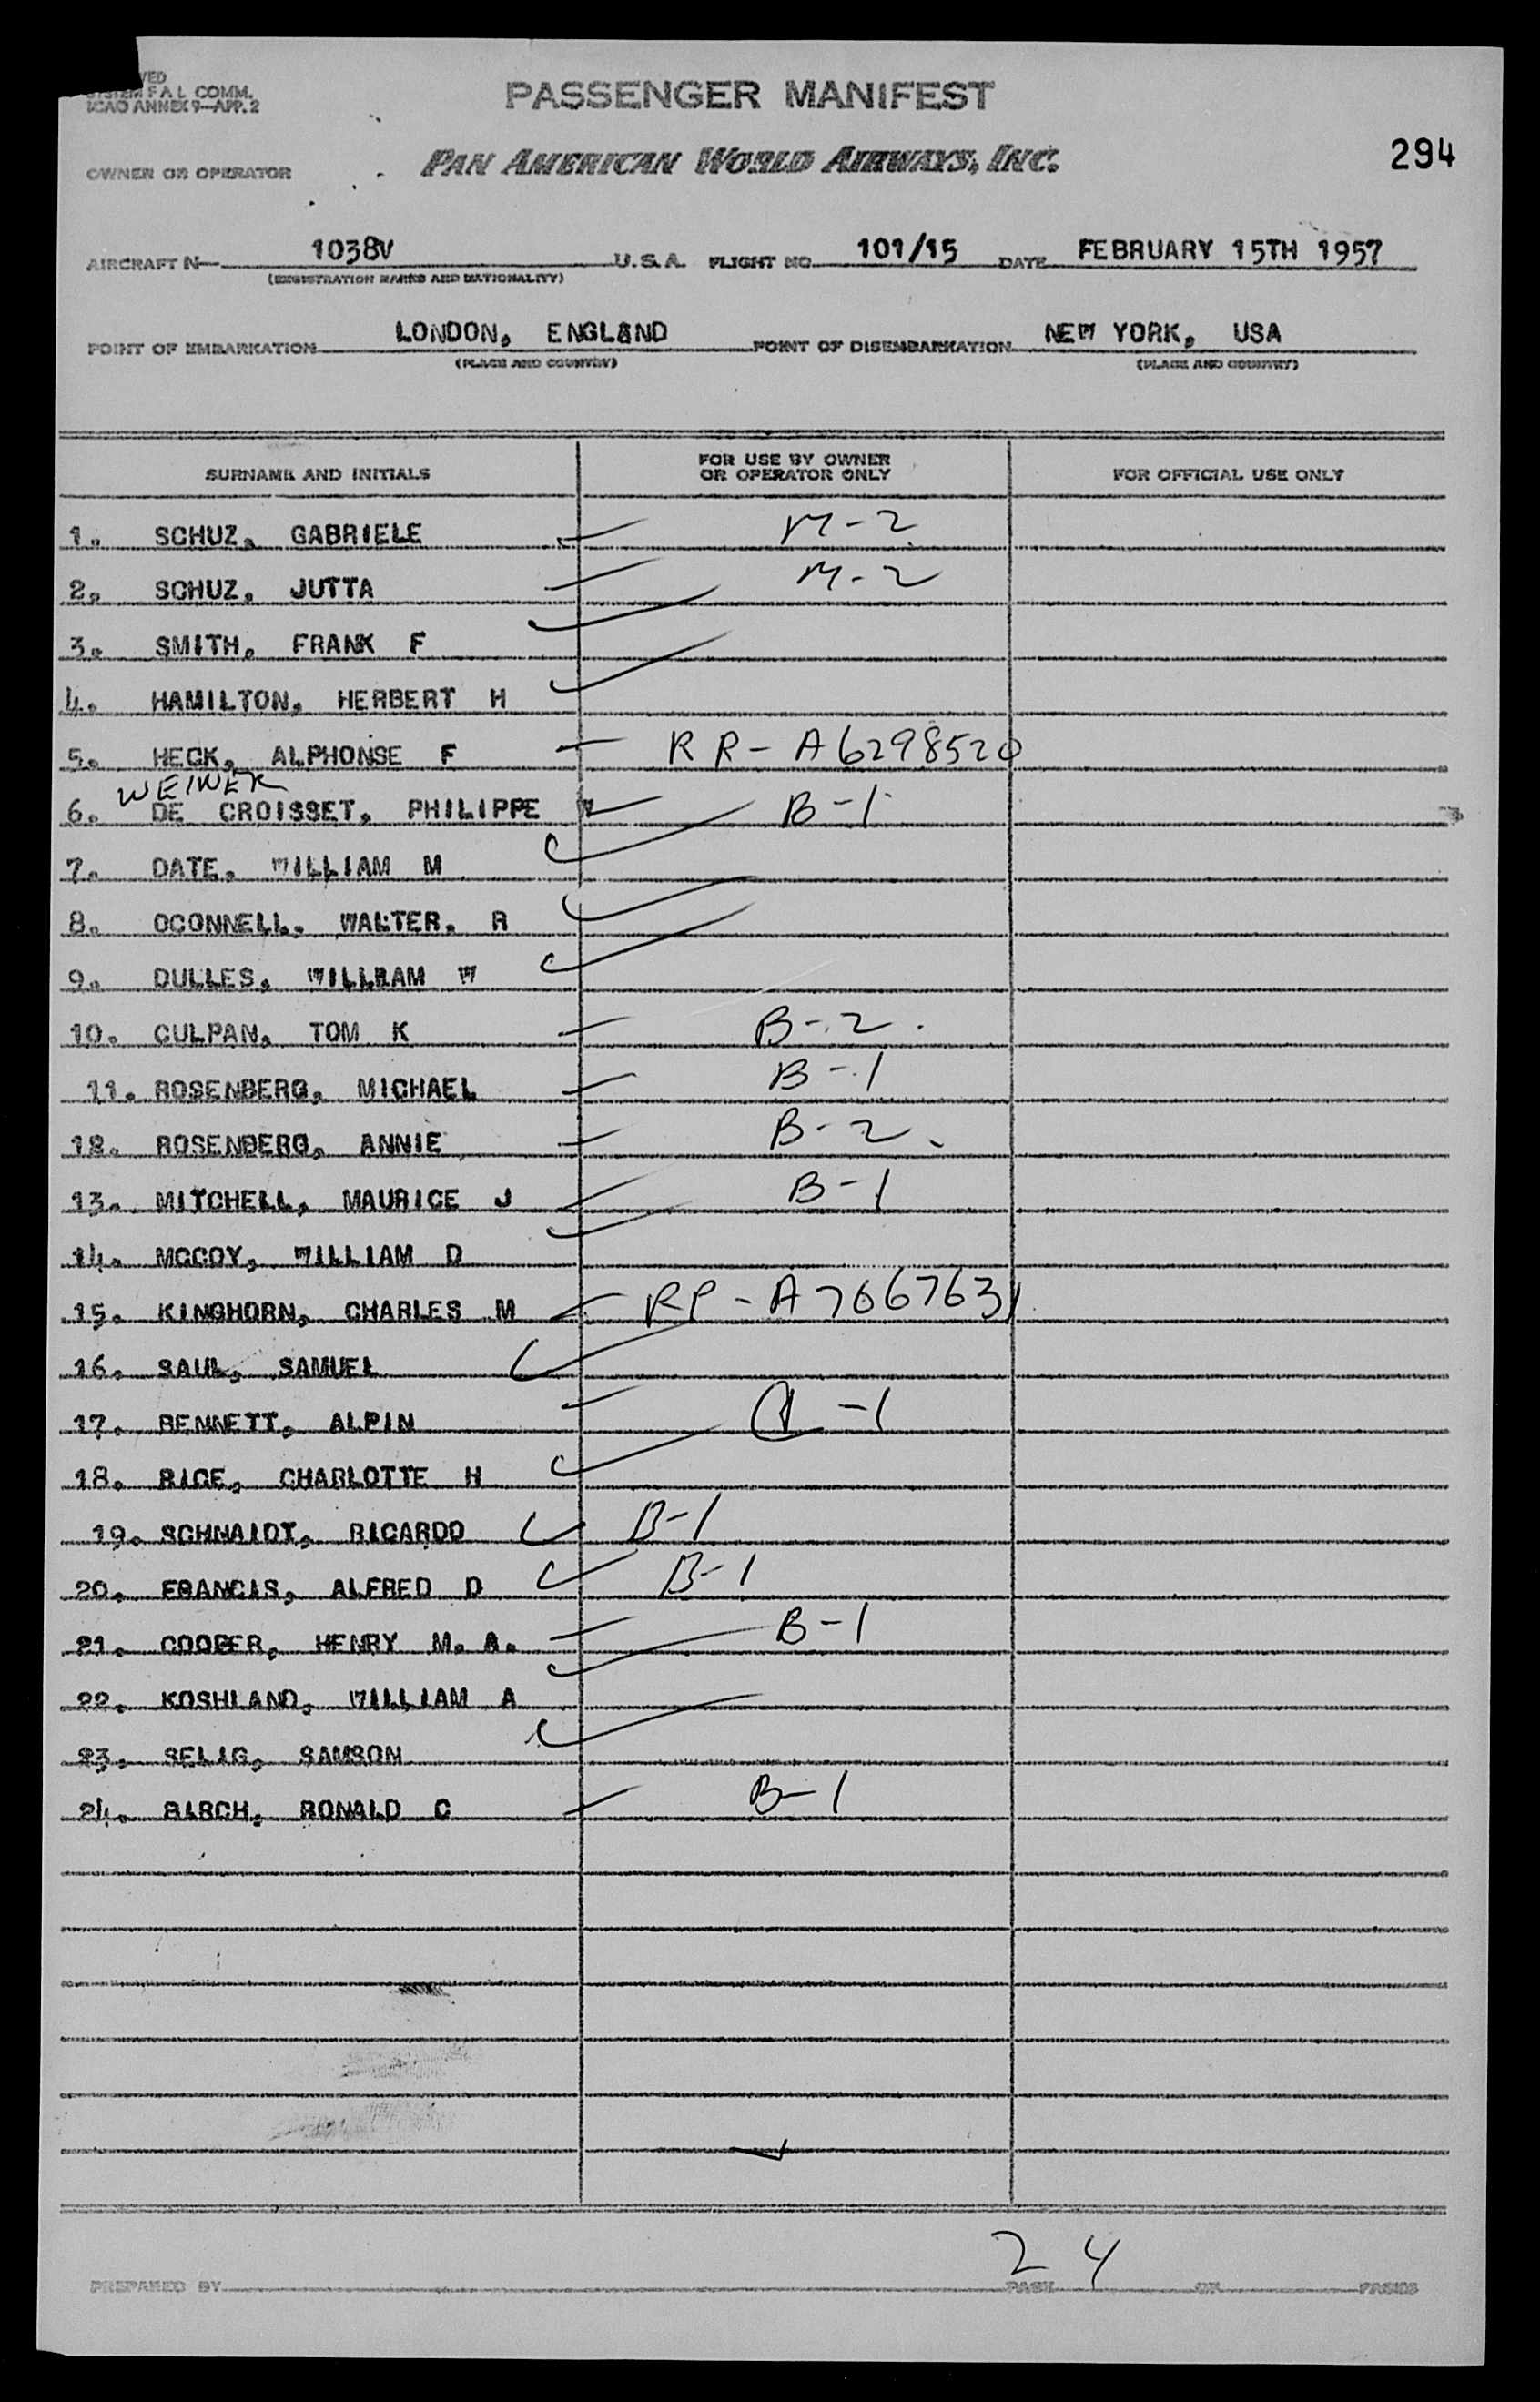 VED
SYSTEM F A L COMM.
ICAO ANNEX 9—APP. 2
PASSENGER MANIFEST
294
OWNER OR OPERATOR PAN AMERICAN WORLD AIRWAYS, INC.
AIRCRAFT N— 1038V U.S.A. FLIGHT NO. 101/15 DATE FEBRUARY 15TH 1957
(REGISTRATION MARKS AND NATIONALITY)
POINT OF EMBARKATION LONDON, ENGLAND POINT OF DISEMBARKATION NEW YORK, USA
(PLACE AND COUNTRY) (PLACE AND COUNTRY)
SURNAME AND INITIALS FOR USE BY OWNER OR OPERATOR ONLY FOR OFFICIAL USE ONLY
1. SCHUZ, GABRIELE M-2
2. SCHUZ, JUTTA M-2
3. SMITH, FRANK F
4. HAMILTON, HERBERT H
5. HECK, ALPHONSE F RR-A6298520
WEINER
6. DE CROISSET, PHILIPPE W B-1
7. DATE, WILLIAM M
8. OCONNELL, WALTER, R
9. DULLES, WILLIAM W
10. CULPAN, TOM K B-2
11. ROSENBERG, MICHAEL B-1
12. ROSENBERG, ANNIE B-2
13. MITCHELL, MAURICE J B-1
14. MCCOY, WILLIAM D
15. KINGHORN, CHARLES M RP-A7667631
16. SAUL, SAMUEL
17. BENNETT, ALPIN -1
18. RICE, CHARLOTTE H
19. SCHNAIDT, RICARDO B-1
20. FRANCIS, ALFRED D B-1
21. COOPER, HENRY M. A. B-1
22. KOSHLAND, WILLIAM A
23. SELIG, SAMSON
24. BIRCH, RONALD C B-1
24
PREPARED BY PAGE OF PAGES